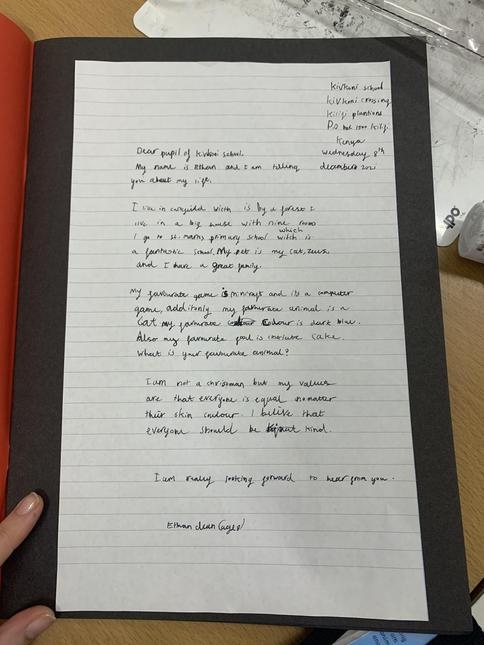 Kivkoni school
kivkoni crossing
kilifi plantions
P.o box 1500 kilifi
Kenya
wednesday 8th
december 2021
Dear pupil of kivkoni school.
My name is Ethan and I am telling
you about my life.
I live in witch is by a forest I
live in a big house with nine rooms
which
I go to st. marys primary school witch is
a fantastic school. My pet is my cat, zeus
and I have a great family.
My favourate game is minicraft and its a computer
game, additonly my favourate animal is a
cat my favourate colour is dark blue.
Also my favourate food is choclate cake.
What is your favourate animal?
I am not a christman but my values
are that everyone is equal nomatter
their skin coulour. I belive that
everyone should be kind.
I am really looking forward to hear from you.
Ethan dean